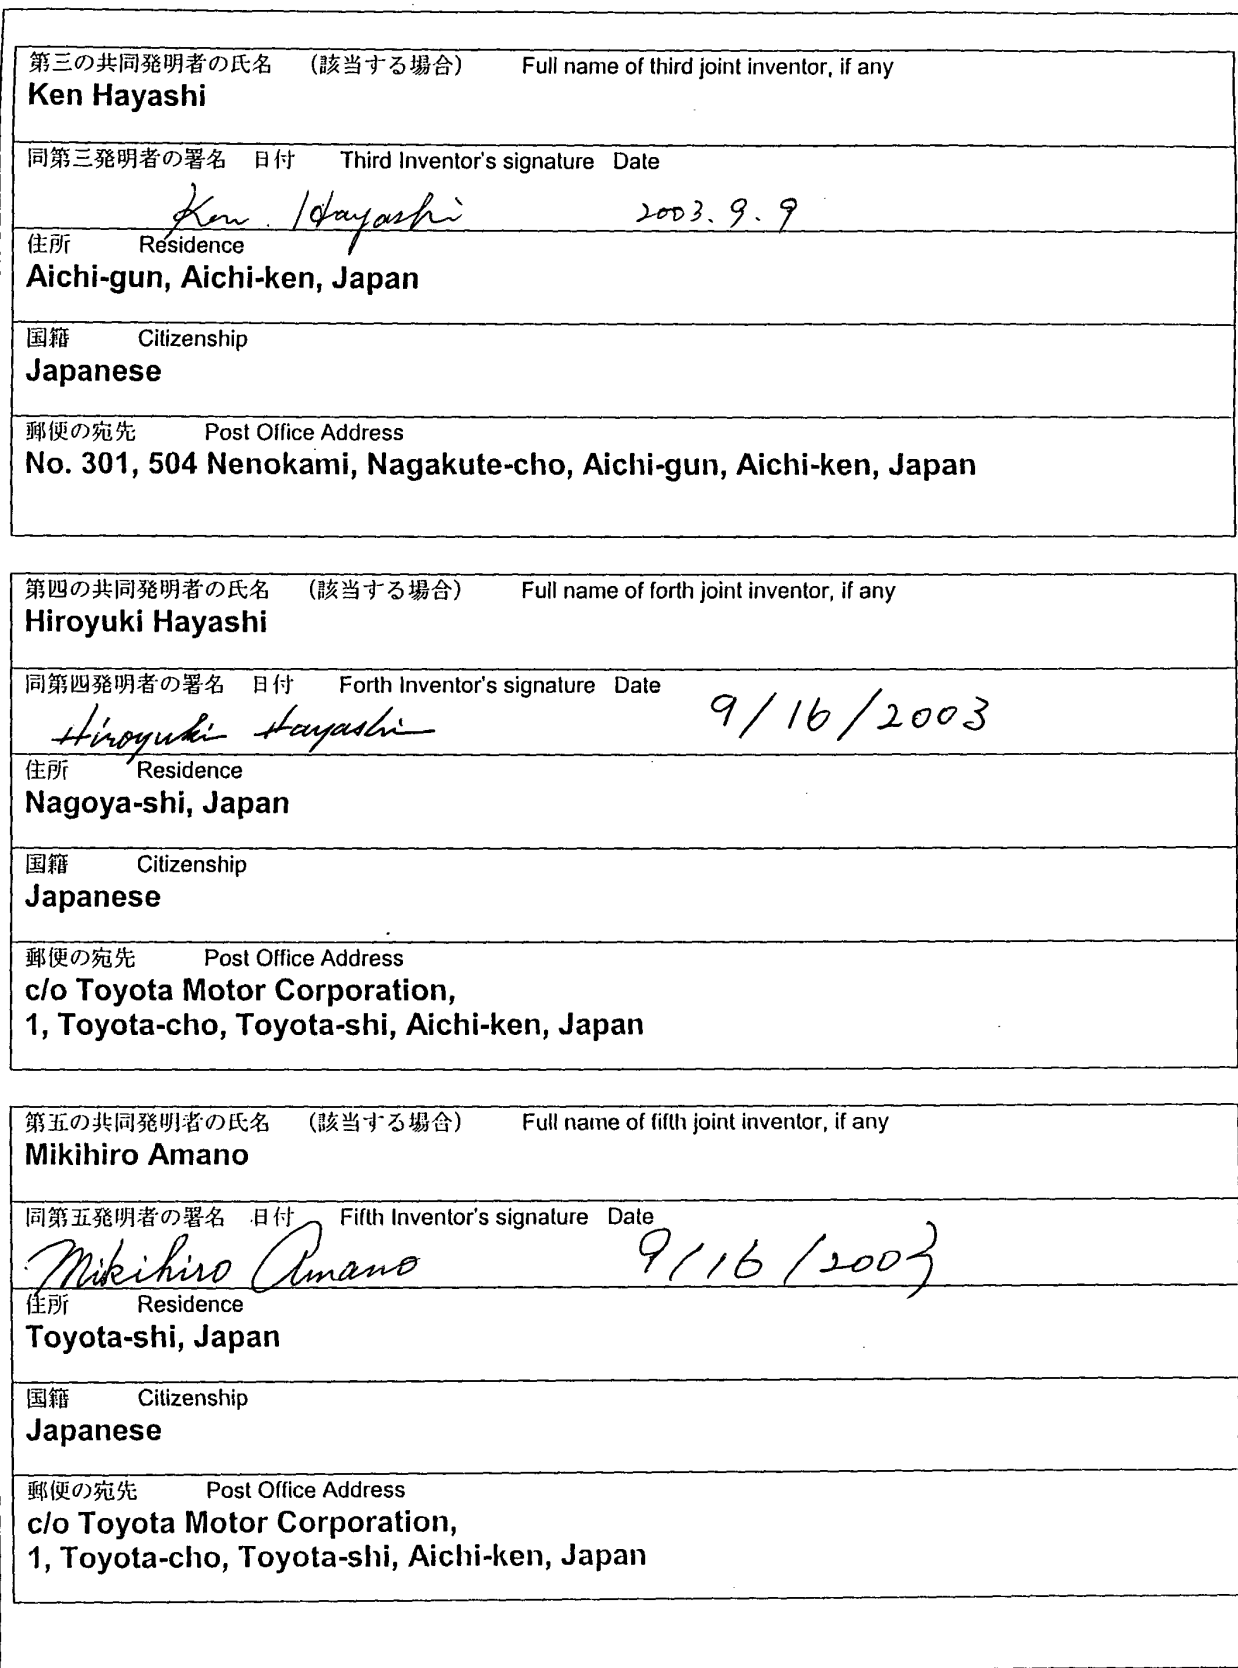 第三の共同発明者の氏名 (該当する場合) Full name of third joint inventor, if any
Ken Hayashi
同第三発明者の署名 日付 Third Inventor's signature Date
Ken. Hayashi 2003. 9. 9
住所 Residence
Aichi-gun, Aichi-ken, Japan
国籍 Citizenship
Japanese
郵便の宛先 Post Office Address
No. 301, 504 Nenokami, Nagakute-cho, Aichi-gun, Aichi-ken, Japan
第四の共同発明者の氏名 (該当する場合) Full name of forth joint inventor, if any
Hiroyuki Hayashi
同第四発明者の署名 日付 Forth Inventor's signature Date
Hiroyuki Hayashi 9/16/2003
住所 Residence
Nagoya-shi, Japan
国籍 Citizenship
Japanese
郵便の宛先 Post Office Address
c/o Toyota Motor Corporation,
1, Toyota-cho, Toyota-shi, Aichi-ken, Japan
第五の共同発明者の氏名 (該当する場合) Full name of fifth joint inventor, if any
Mikihiro Amano
同第五発明者の署名 日付 Fifth Inventor's signature Date
Mikihiro Amano 9/16/2003
住所 Residence
Toyota-shi, Japan
国籍 Citizenship
Japanese
郵便の宛先 Post Office Address
c/o Toyota Motor Corporation,
1, Toyota-cho, Toyota-shi, Aichi-ken, Japan